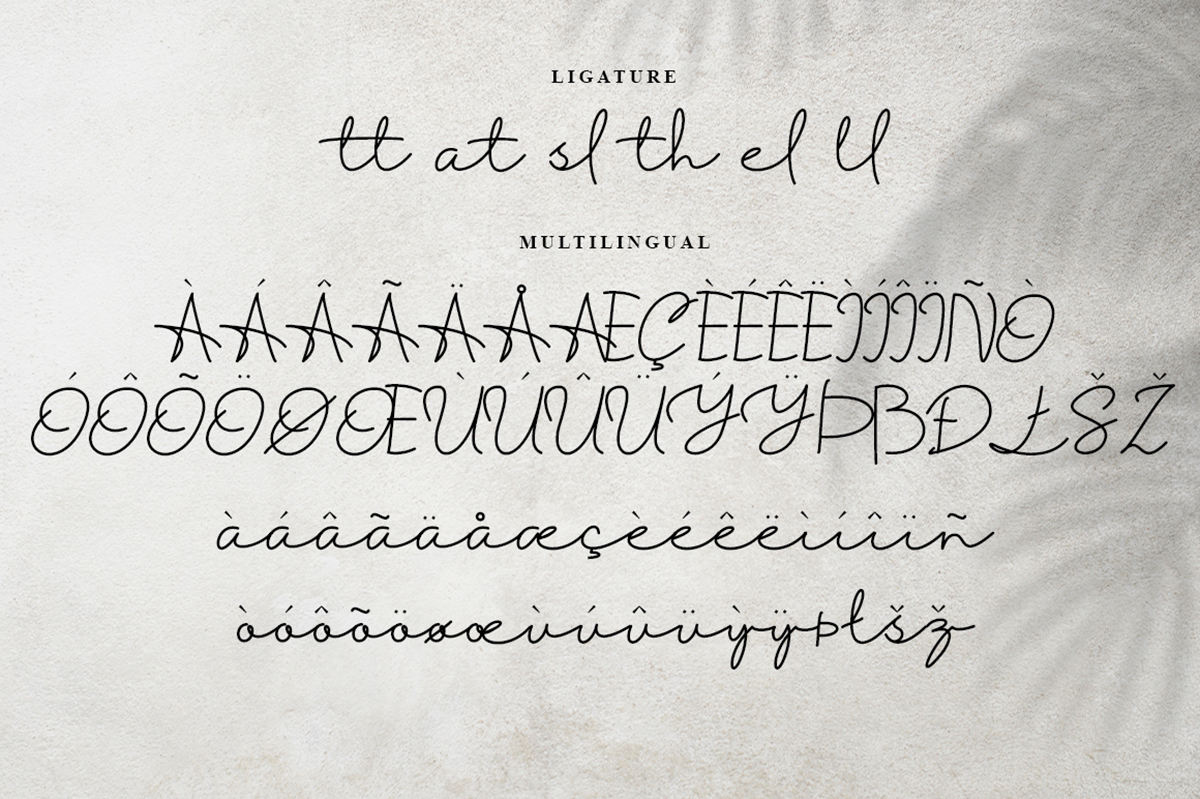 LIGATURE
tt at sl th el ll
MULTILINGUAL
ÀÁÂÃÄÅÆÇÈÉÊËÌÍÎÏÑÒ
ÓÔÕÖØŒÙÚÛÜÝŸÞßÐŁŠŽ
àáâãäåæçèéêëìíîïñ
òóôõöøœùúûüỳÿþłšž